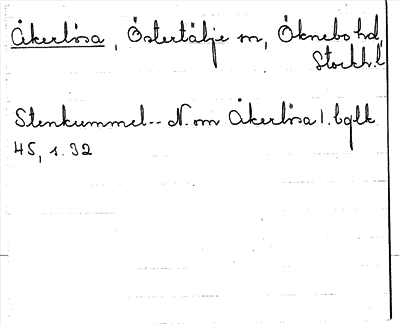 Åkerlösa, Östertälje sn, Öknebo hd,
Stockh. l
Stenkummel -- N. om Åkerlösa l. bglk
45, s. 32